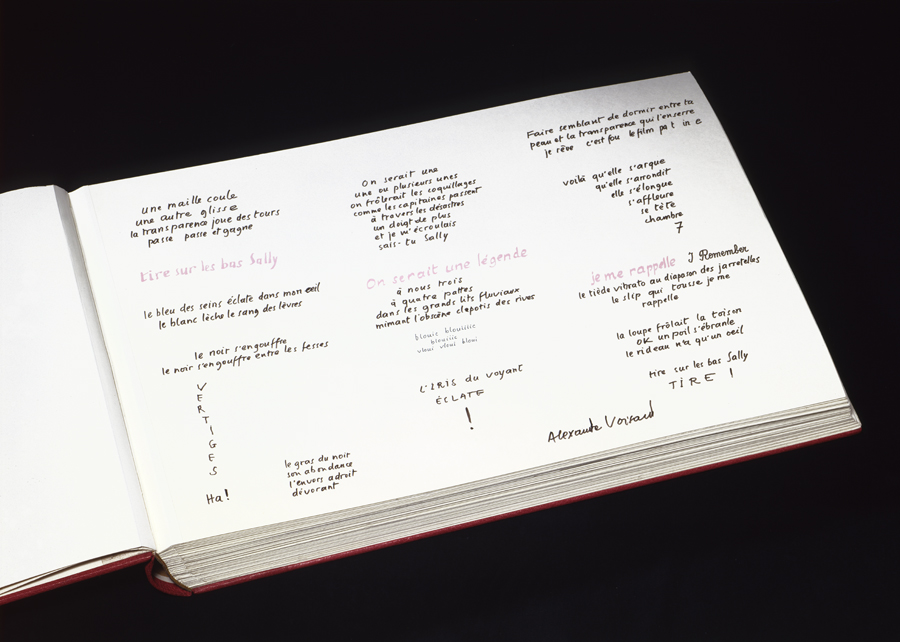 une maille coule
une autre glisse
la transparence joue des tours
passe passe et gagne
tire sur les bas Sally
le bleu des seins éclate dans mon oeil
le blanc lèche le sang des lèvres
le noir s'engouffre
le noir s'engouffre entre les fesses
VERTIGES
Ha!
le gras du noir
son abondance
l'envers adroit
dévorant
On serait une
une ou plusieurs unes
on frôlerait les coquillages
comme les capitaines passent
à travers les désastres
un doigt de plus
et je m'écroulais
sais-tu Sally
On serait une légende
à nous trois
à quatre pattes
dans les grands lits fluviaux
mimant l'obscène clapotis des rives
blouic blouiiiic
blouiiic
vloui vloui bloui
L'IRIS du voyant
ÉCLATE
!
Faire semblant de dormir entre ta
peau et la transparence qui l'enserre
je rêve c'est fou le film pa t in e
voilà qu'elle s'arque
qu'elle s'arrondit
elle s'élongue
s'affleure
se tète
chambre
7
je me rappelle I Remember
le tiède vibrato au diapason des jarretelles
le slip qui tousse je me
rappelle
la loupe frôlait la toison
OK un poil s'ébranle
le rideau n'a qu'un oeil
tire sur les bas Sally
TIRE !
Alexandre Voisard